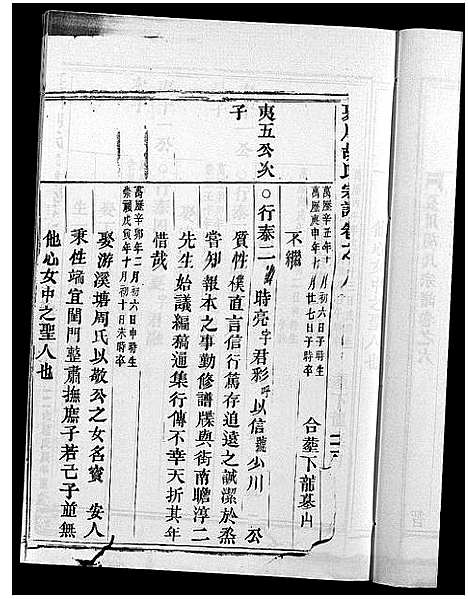 萬歷辛丑年十月初六日子時生
萬歷庚申年七月廿七日子時卒
合塟下龍墓山
不繼
夷五公次子
○行泰二
時亮字君彩呼以信號少川
公質性樸直言信行篤存追遠之誠潔於烝
嘗知報本之事勤修譜牒與街南瞻淳二
先生始議編稿通集行傳不幸天折其年
惜哉
萬歷辛卯年二月初六日申時生
崇禎戊寅年十月初十日未時卒
娶游溪塘周氏以敬公之女名寶 安人
秉性端宜閨門整肅撫庶子若己子並無
他心女中之聖人也